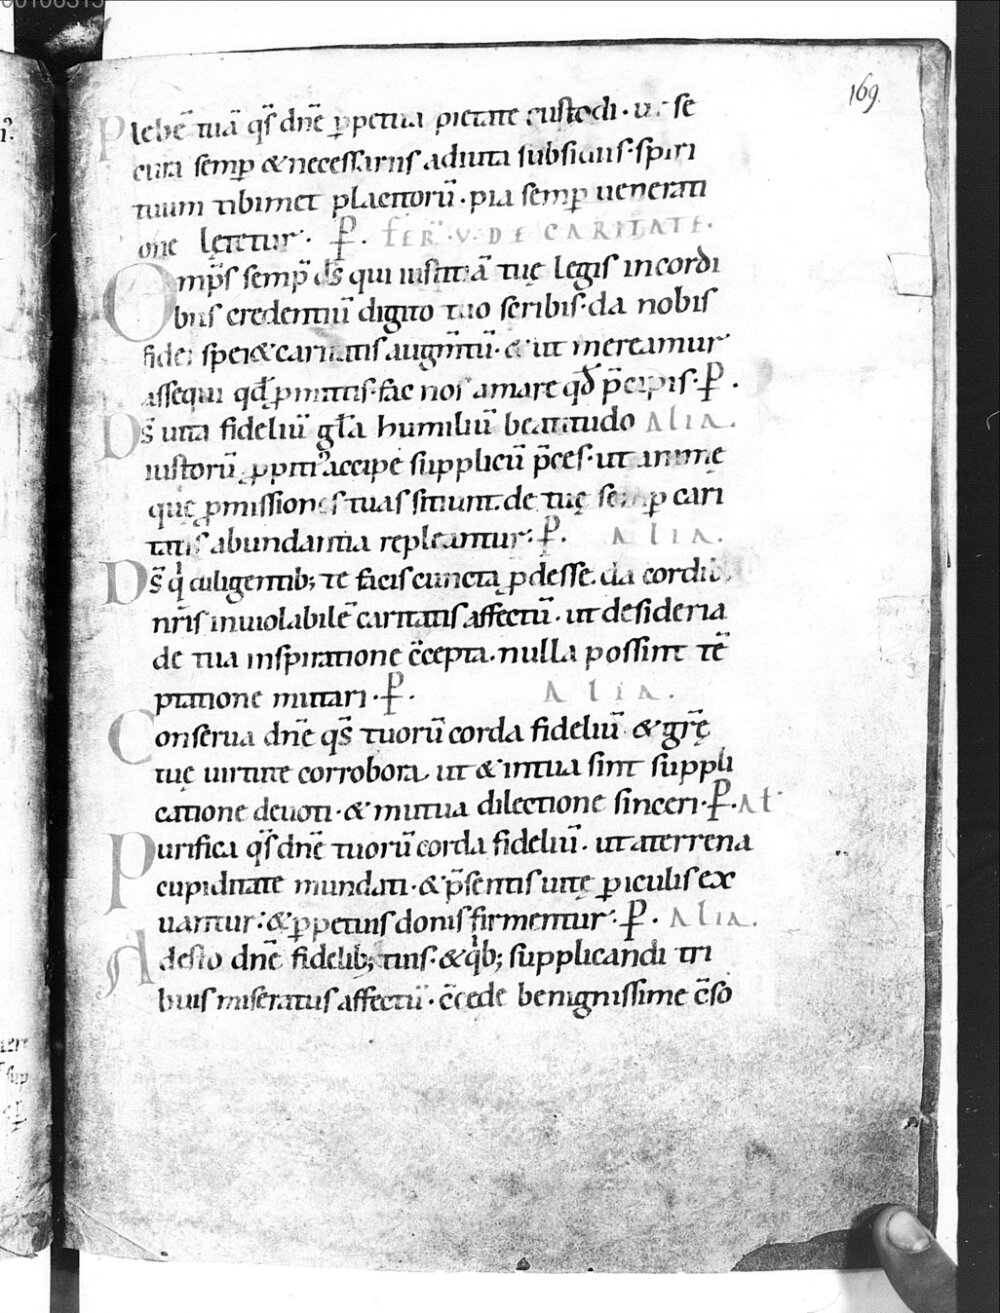 169
Plebē tuā q̄s dn̄e ꝑpetua pietate custodi · ut se
cura semꝑ & necessariis adiuta subsidiis · spiri
tuum tibimet placitorū · pia semꝑ uenerati
one lętetur · P̄ . FER̄ · V · DE CARITATE ·
Omp̄s semp̄ ds̄ qui iustitiā tuę legis in cordi
bus credentiū digito tuo scribis · da nobis
fidei spei & caritatis augm̄tū · & ut mereamur
assequi qđ ꝓmittis · fac nos amare qđ p̄cipis · P̄ .
Ds̄ uita fideliū gl̄a humiliū beatitudo ALIA .
iustorū ꝓpiti᾽ accipe supplicū p̄ces · ut animę
quę ꝓmissiones tuas sitiunt . de tuę semꝑ cari
tatis abundantia repleantur : P̄ . ALIA .
Ds̄ q̇ diligentib; te facis cuncta ꝓdesse . da cordib;
nr̄is inuiolabilē caritatis affectū · ut desideria
de tua inspiratione c̄cepta . nulla possint tē
ptatione mutari · P̄ . ALIA .
Conserua dn̄e q̄s tuorū corda fideliū & gr̄ę
tuę uirtute corrobora . ut & in tua sint suppli
catione deuoti · & mutua dilectione sinceri · P̄ . AL
Purifica q̄s dn̄e tuorū corda fideliū . ut a terrena
cupiditate mundati · & p̄sentis uitę ꝑiculis ex
uantur : & ꝑpetuis donis firmentur : P̄ . ALIA .
Adesto dn̄e fidelib; tuis · & q̇b; supplicandi tri
buis miseratus affectū · c̄cede benignissime c̄so